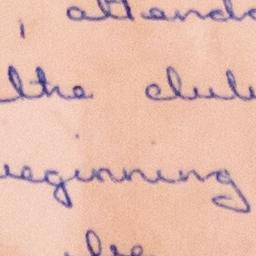 , attend
the club
beginning
be